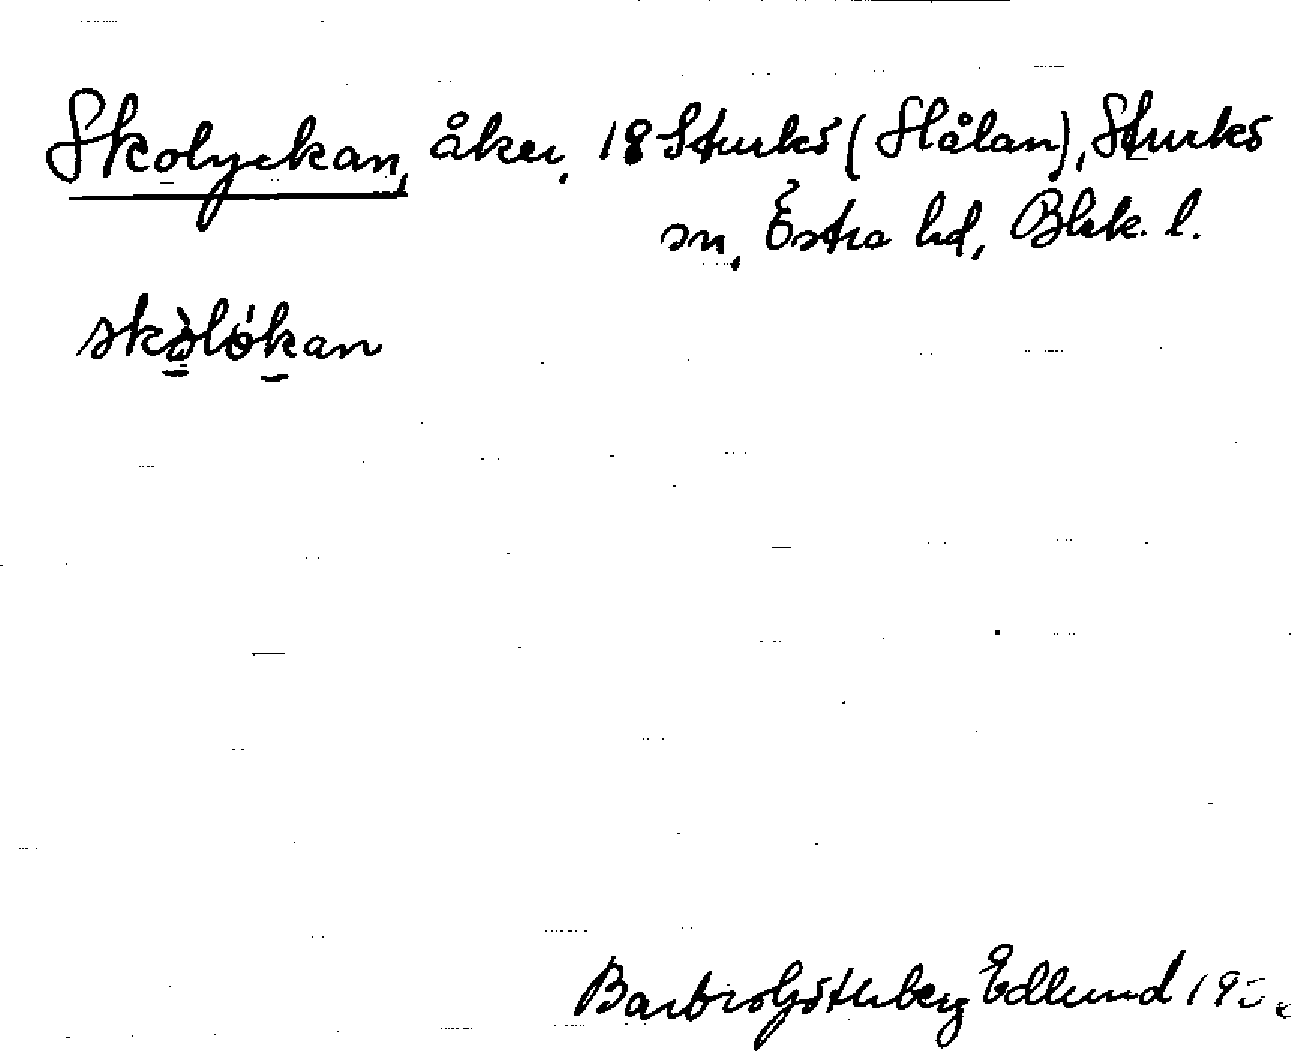 Skolyckan, åker, 18 Sturkö (Hålan), Sturkö
sn, Östra hd, Blek. l.
skòlókan
Barbro Götherberg Edlund